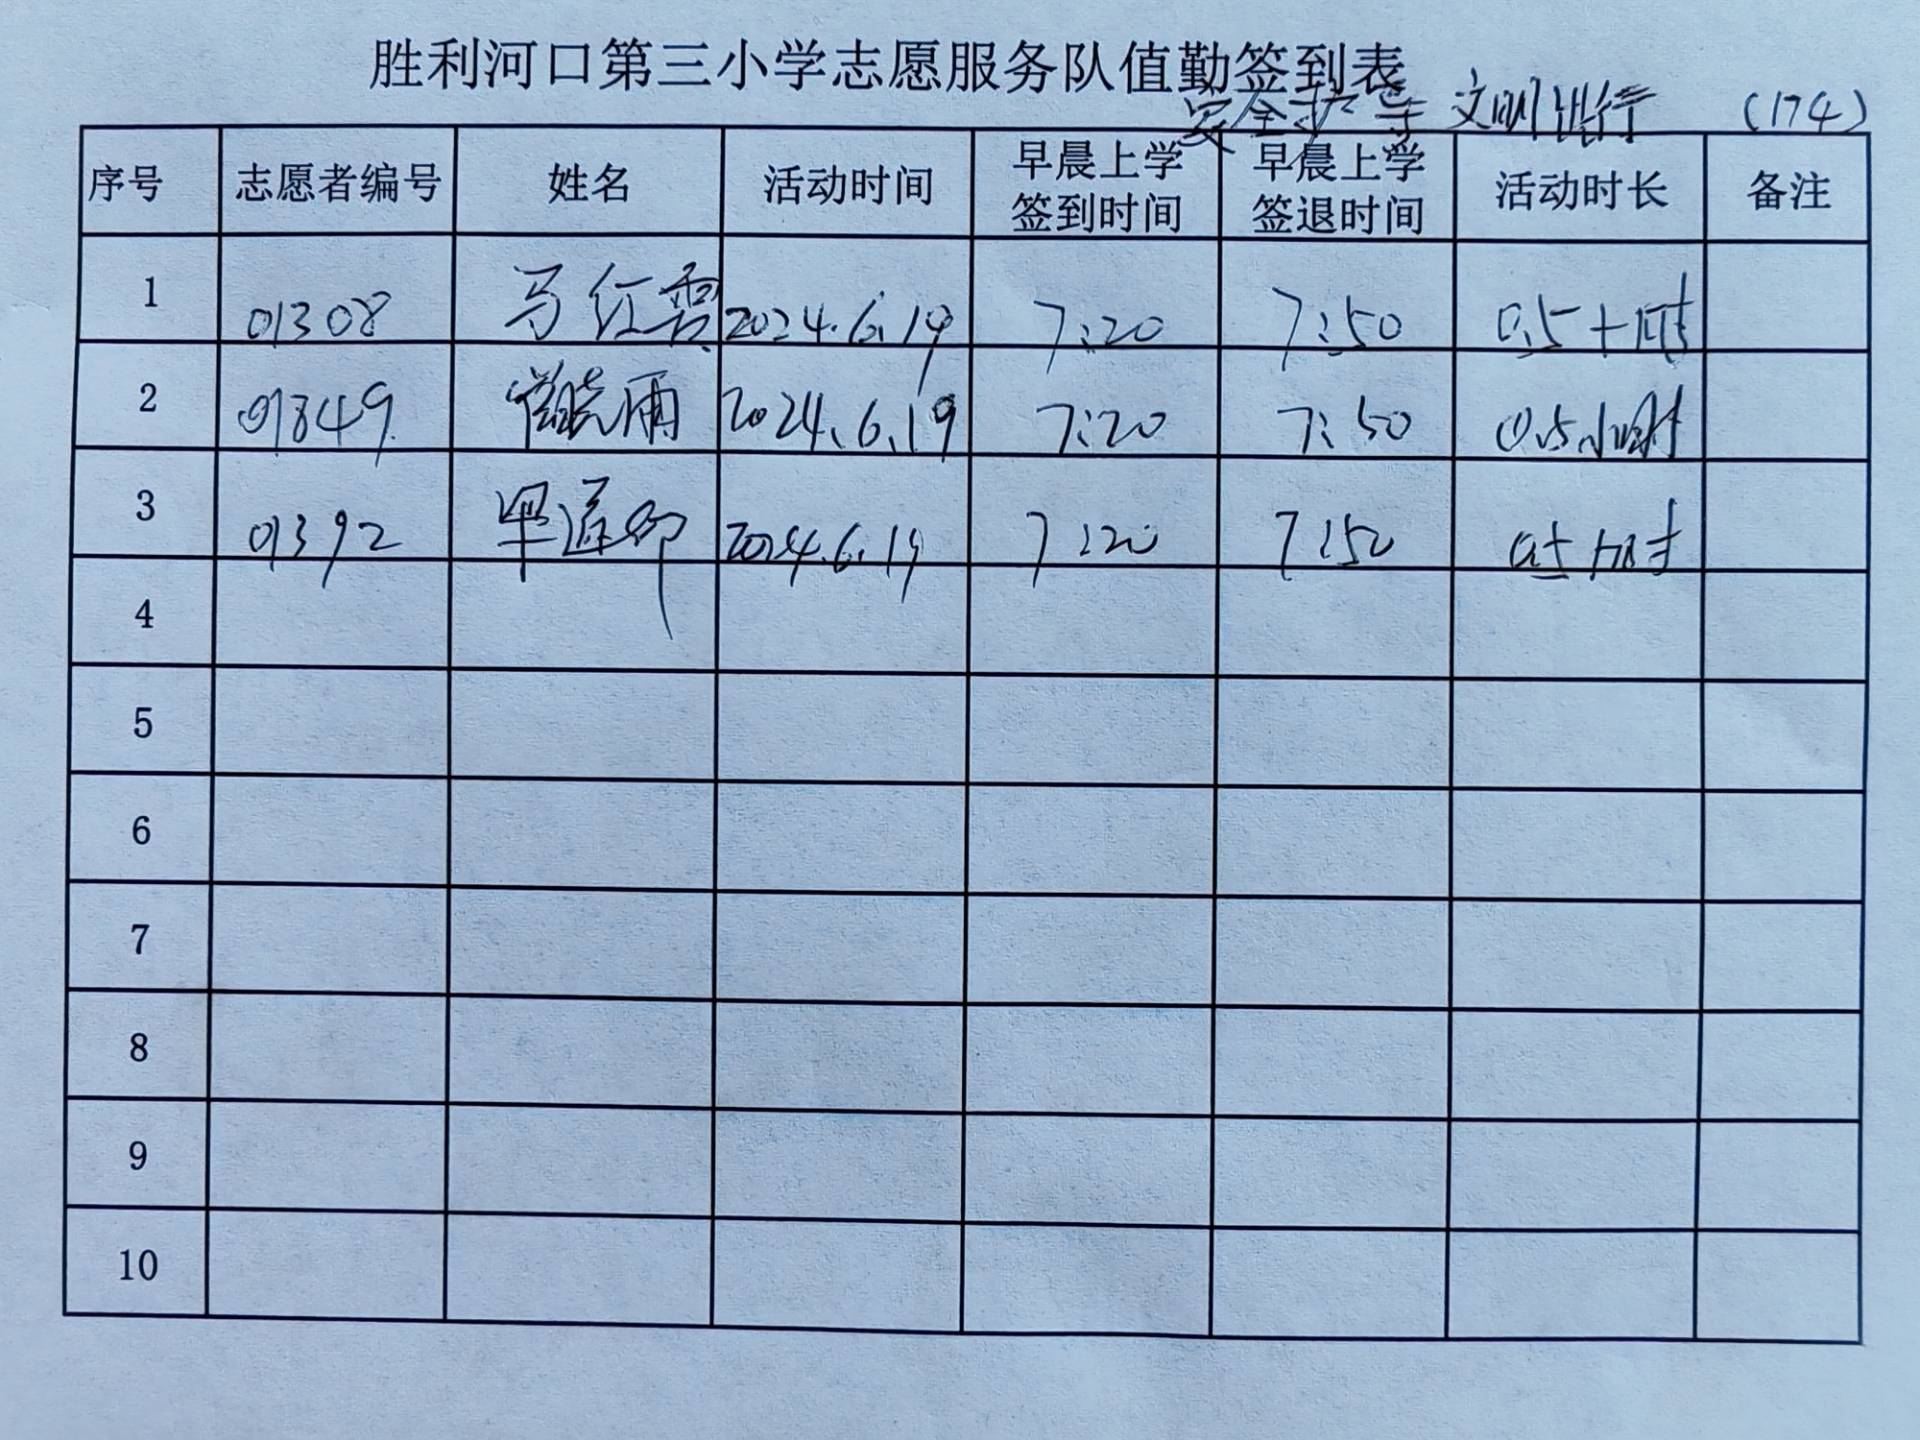 胜利河口第三小学志愿服务队值勤签到表
安全护学 文明进行 (174)
序号 志愿者编号 姓名 活动时间 早晨上学签到时间 早晨上学签退时间 活动时长 备注
1 01308 马红霞 2024.6.19 7:20 7:50 0.5小时
2 01349 晓雨 2024.6.19 7:20 7:50 0.5小时
3 01392 2024.6.19 7:20 7:50 0.5小时
4
5
6
7
8
9
10